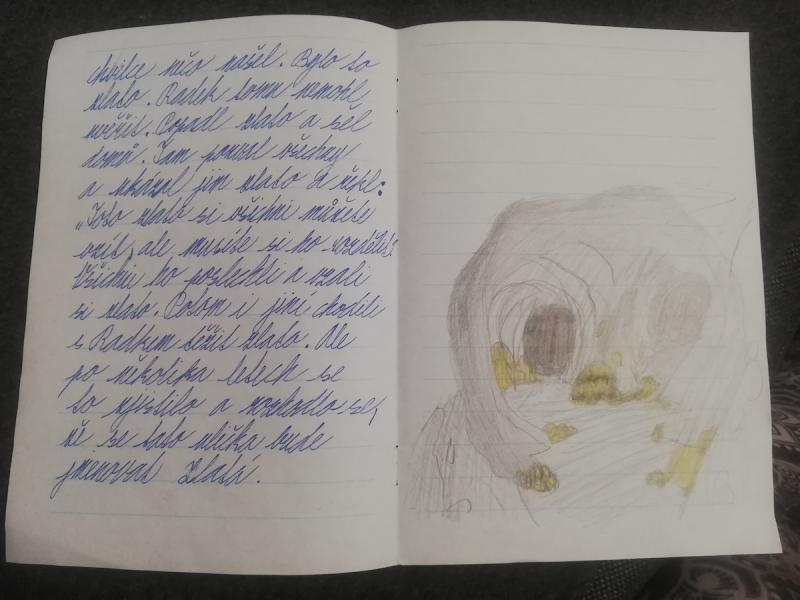 chvilce něco našel. Bylo to
zlato. Radek tomu nemohl
uvěřit. Popadl zlato a šel
domů. Tam pozval všechny
a ukázal jim zlato a řekl:
„Toto zlato si všichni můžete
vzít, ale musíte si ho rozdělit!
Všichni ho poslechli a vzali
si zlato. Potom i jiní chodili
s Radkem těžit zlato. Ale
po několika letech se
to zjistilo a rozhodlo se,
že se tato ulička bude
jmenovat Zlatá.